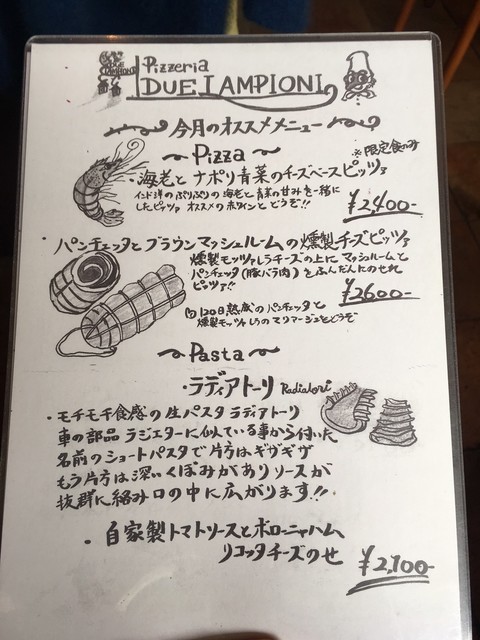 Pizzeria
DUE LAMPIONI
今月のオススメメニュー
Pizza
※限定食のみ
・海老とナポリ青菜のチーズベースピッツァ
インド洋のぷりぷりの海老と青菜の甘みを一緒に
したピッツァ オススメの赤ワインとどうぞ!!
¥2,400-
・パンチェッタとブラウンマッシュルームの燻製チーズピッツァ
燻製モッツァレラチーズの上にマッシュルームと
パンチェッタ(豚バラ肉)をふんだんにのせた
ピッツァ!!
120日熟成のパンチェッタと
燻製モッツァレラのマリアージュをどうぞ
¥2600-
Pasta
・ラディアトーリ Radiatori
・モチモチ食感の生パスタ ラディアトーリ
車の部品ラジエターに似ている事から付いた
名前のショートパスタで片方はギザギザ
もう片方は深いくぼみがありソースが
抜群に絡み口の中に広がります!!
・自家製トマトソースとボローニャハム
リコッタチーズのせ
¥2,100-